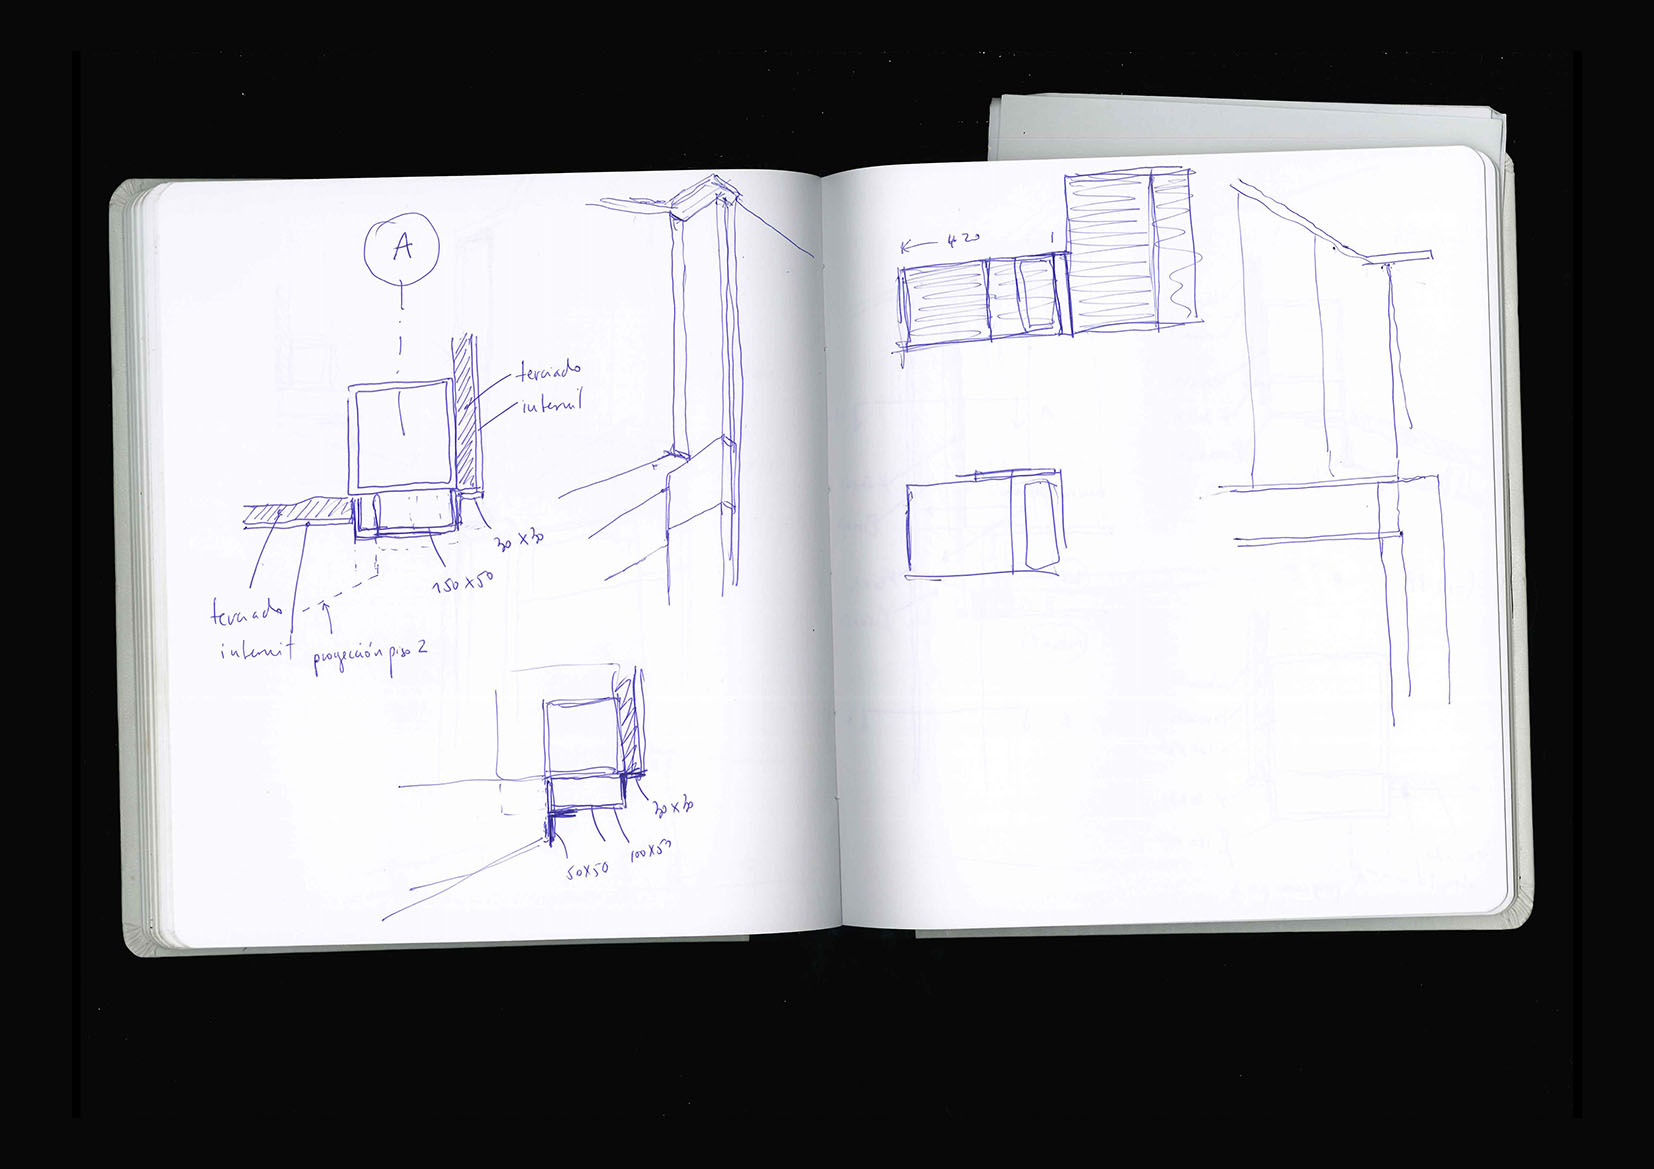 A
terciado
internit
30 x 30
150 x 50
terciado
internit
proyección piso 2
30 x 30
100 x 50
50 x 50
420